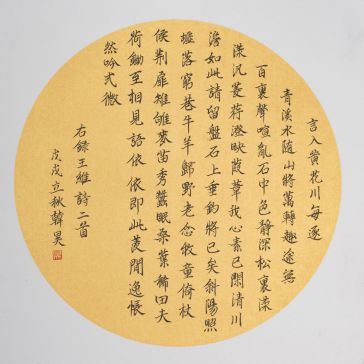 言入黃花川每逐
青溪水隨山將萬轉趣途無
百裏聲喧亂石中色靜深松裏漾
漾汎菱荇澄映葭葦我心素已閑清川
澹如此請留盤石上垂釣將已矣斜陽照
墟落窮巷牛羊歸野老念牧童倚杖
候荊扉雉雊麥苗秀蠶眠桑葉稀田夫
荷鋤至相見語依依即此羨閒逸悵
然吟式微
右錄王維詩二首
戊戌立秋韓昊